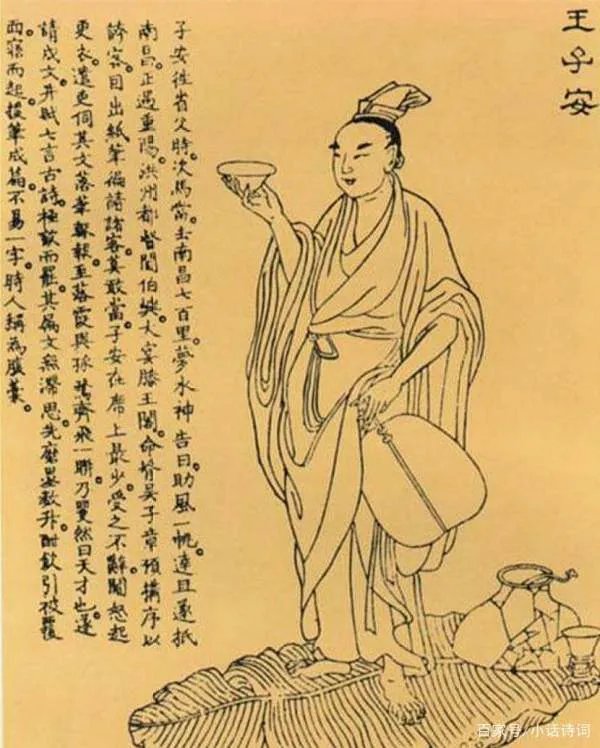 王子安
子安往省父時次馬當去南昌七百里夢水神告曰助風一帆達旦遂抵
南昌正遇重陽洪州都督閻伯嶼大宴滕王閣命壻吴子章預搆序以
誇客因出紙筆徧請諸客莫敢當子安在席上最少受之不辭閻怒起
更衣遣吏伺其文落筆輒報至落霞與孤鶩齊飛一聯乃矍然曰天才也遂
請成文并賦七言古詩極歡而罷其屬文無滯思先磨墨數升酣飲引被覆
面寐而起援筆成篇不易一字時人稱為腹藁
百家号/小话诗词